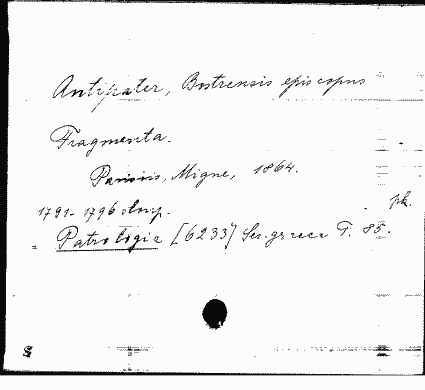 Antipater, Bostrensis episcopus
Fragmenta.
Parisiis, Migne, 1864.
1791-1796 hasp. pk.
Patrologia [6233] Ser. graeca T. 85.